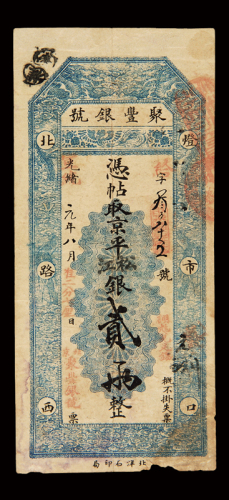 聚豐銀號
燈市口
北路西
字 號
憑帖取京平松江銀貳兩整
光緒元年八月 日 票
概不掛失票
北洋石印局